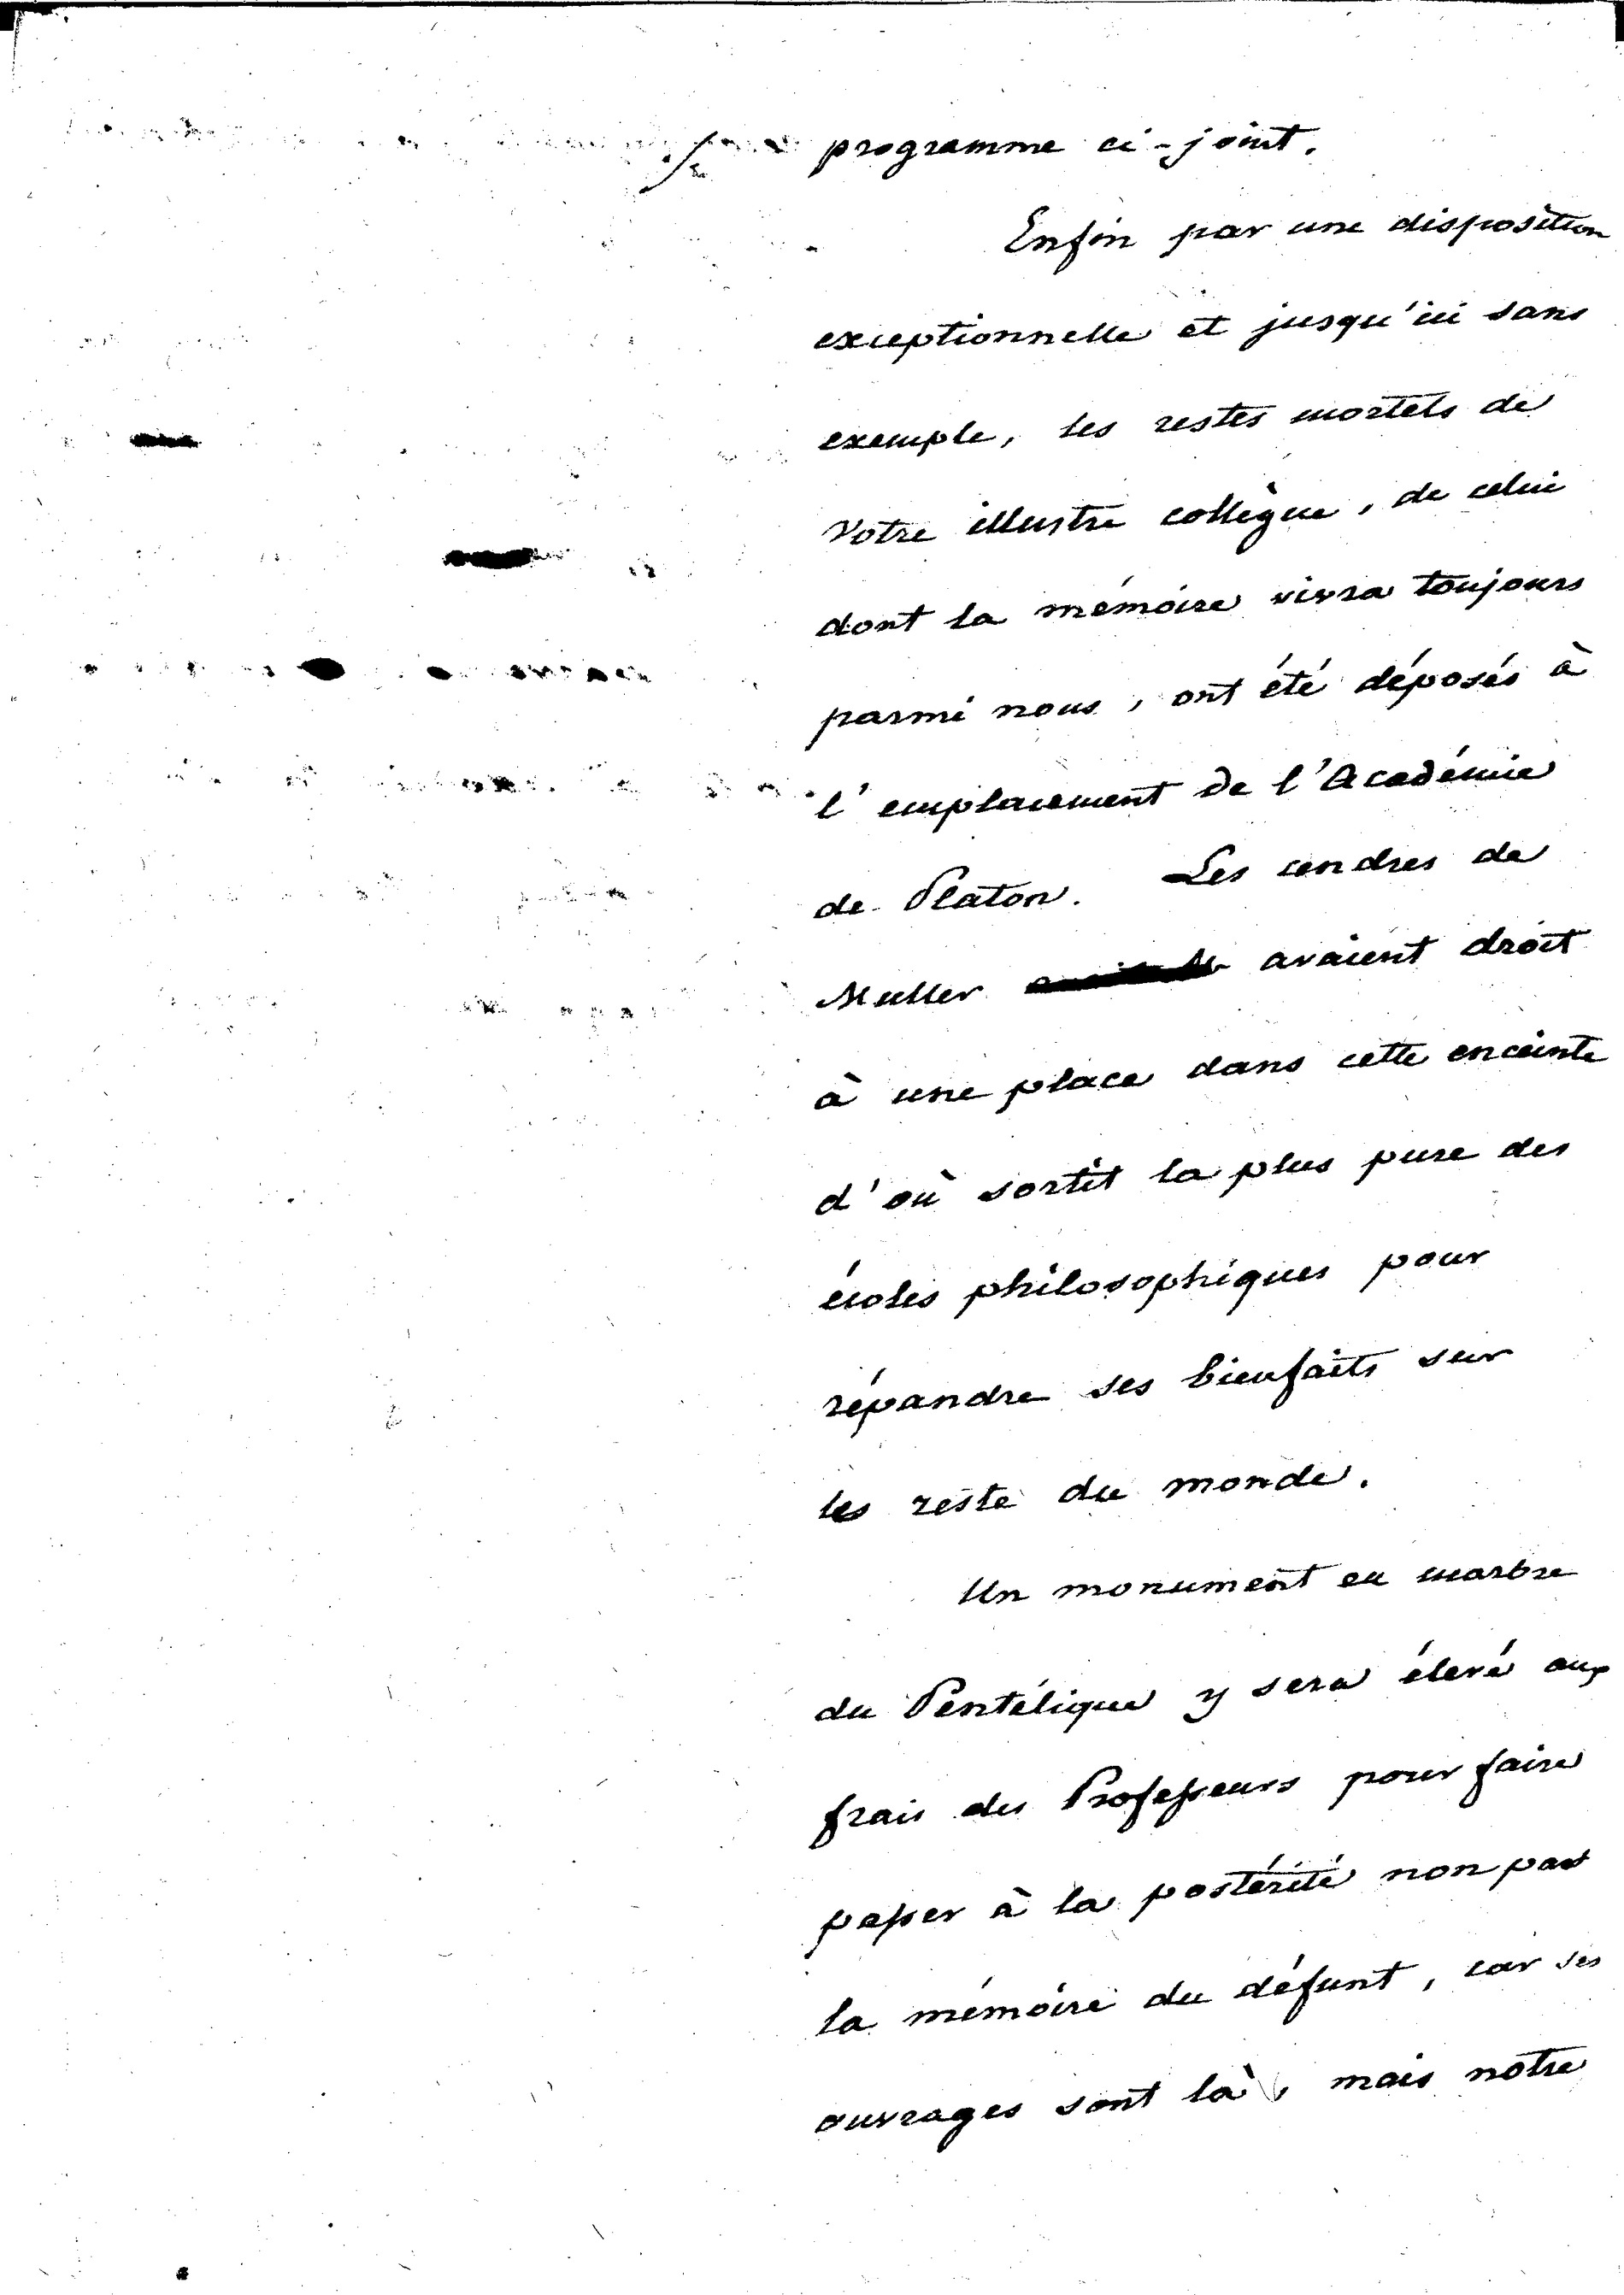 programme ci-joint.
Enfin par une disposition
exceptionnelle et jusqu'ici sans
exemple, les restes mortels de
Votre illustre collègue, de celui
dont la mémoire vivra toujours
parmi nous, ont été déposés à
l'emplacement de l'Académie
de Platon. Les cendres de
Muller avaient droit
à une place dans cette enceinte
d'où sortit la plus pure des
écoles philosophiques pour
répandre ses bienfaits sur
les reste du monde.
Un monument en marbre
du Pentélique y sera élevé aux
frais des Professeurs pour faire
passer à la postérité non pas
la mémoire du défunt, car ses
ouvrages sont là, mais notre